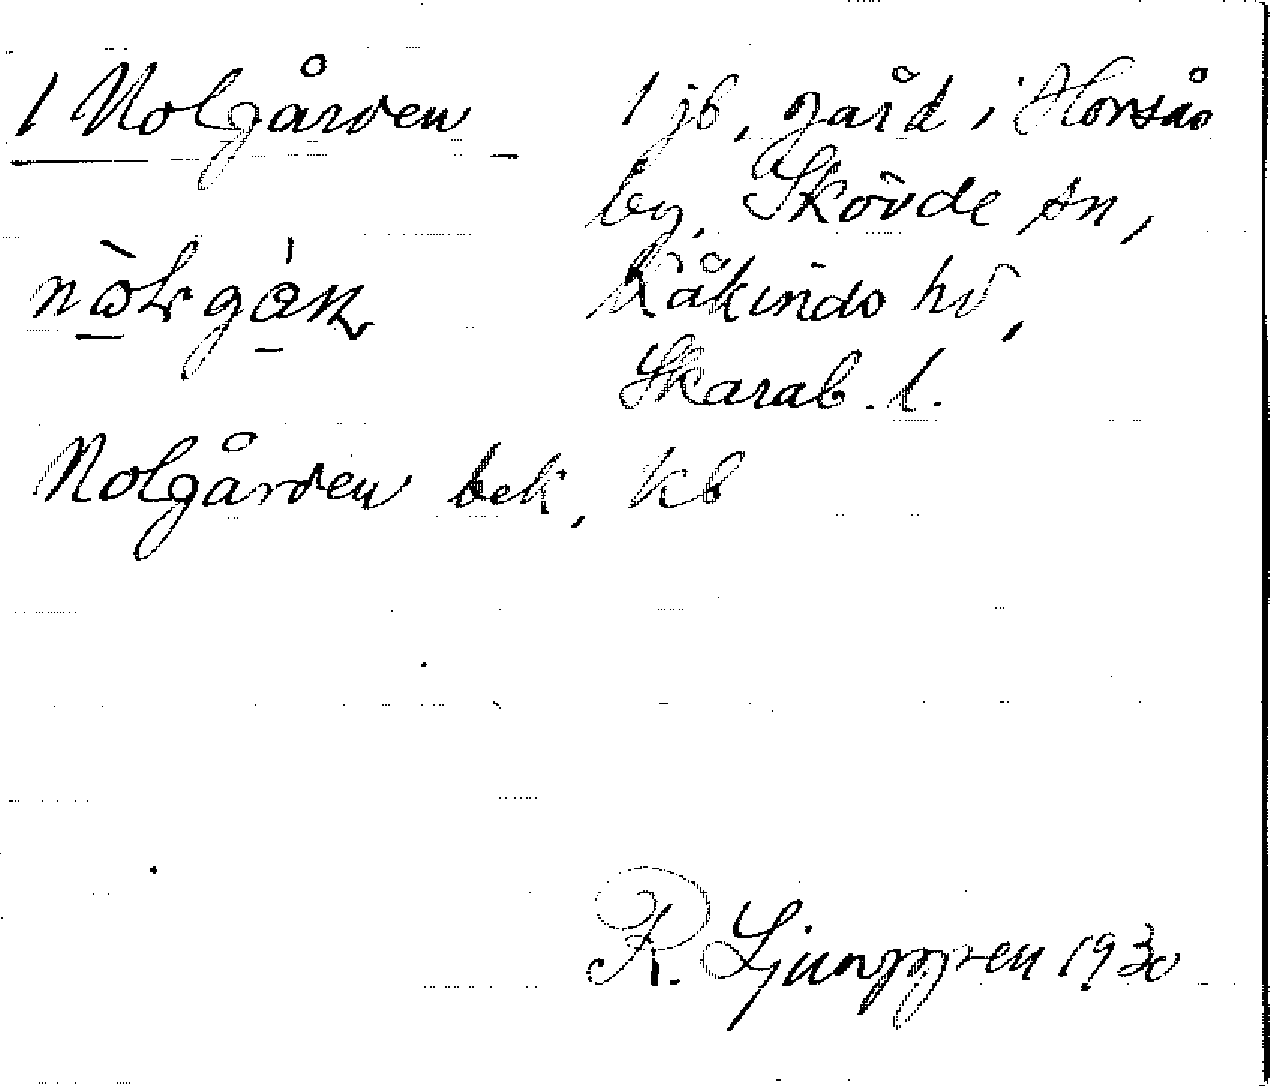 1 Nolgården
1 jb. gård i Horsås
by, Skövde sn,
Kåkinds hd,
Skarab. l.
Nolgården bek, kb
R. Ljunggren 1930